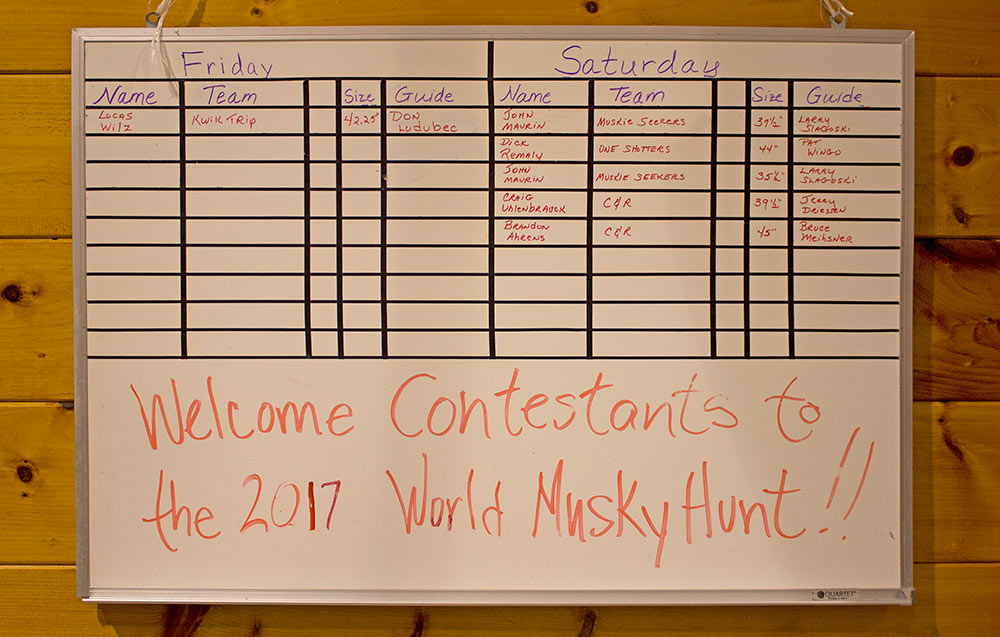 Friday Saturday
Name Team Size Guide Name Team Size Guide
Lucas Wilz Kwik Trip 42.25" Don Ludubec John Maurin Muskie Seekers 37½" Larry Slagoski
Dick Remaly One Shotters 44" Pat Wingo
John Maurin Muskie Seekers 35¼" Larry Slagoski
Craig Uhlenbrauck C&R 39½" Jerry Driessen
Brandon Ahrens C&R 45" Bruce Meihsner
Welcome Contestants to
the 2017 World Musky Hunt!!
QUARTET